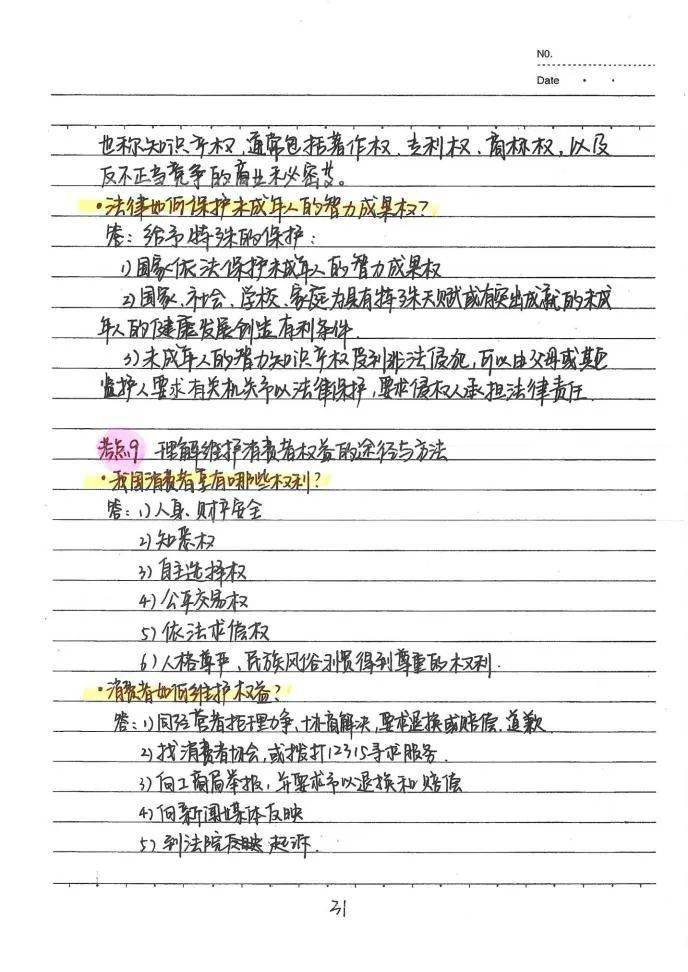 NO.
Date
也称知识产权,通常包括著作权、专利权、商标权,以及
反不正当竞争的商业秘密等。
·法律如何保护未成年人的智力成果权?
答:给予特殊的保护:
1)国家依法保护未成年人的智力成果权
2)国家、社会、学校、家庭为具有特殊天赋或有突出成就的未成
年人的健康发展创造有利条件.
3)未成年人的智力知识产权受到非法侵犯,可以由父母或其他
监护人要求有关机关予以法律保护,要求侵权人承担法律责任.
考点9 理解维护消费者权益的途径与方法
·我国消费者享有哪些权利?
答:1)人身、财产安全
2)知悉权
3)自主选择权
4)公平交易权
5)依法求偿权
6)人格尊严、民族风俗习惯得到尊重的权利.
·消费者如何维护权益?
答:1)同经营者据理力争、协商解决,要求退换或赔偿、道歉.
2)找消费者协会,或拨打12315寻求服务.
3)向工商局举报,并要求予以退换和赔偿
4)向新闻媒体反映
5)到法院反映起诉.
31